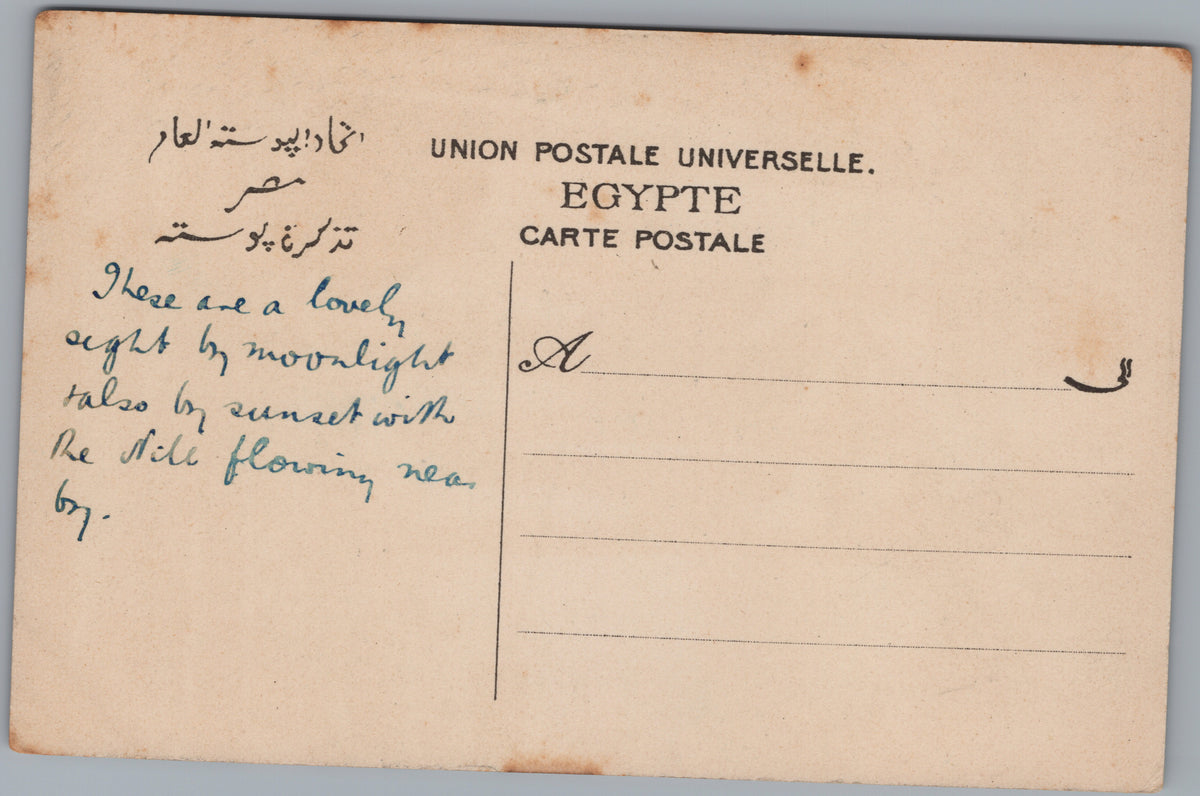 اتحاد اپپوسته العام
مصر
تذكرة پوسته
UNION POSTALE UNIVERSELLE.
EGYPTE
CARTE POSTALE
These are a lovely
sight by moonlight
+also by sunset with
the Nile flowing near
by.
A
الى